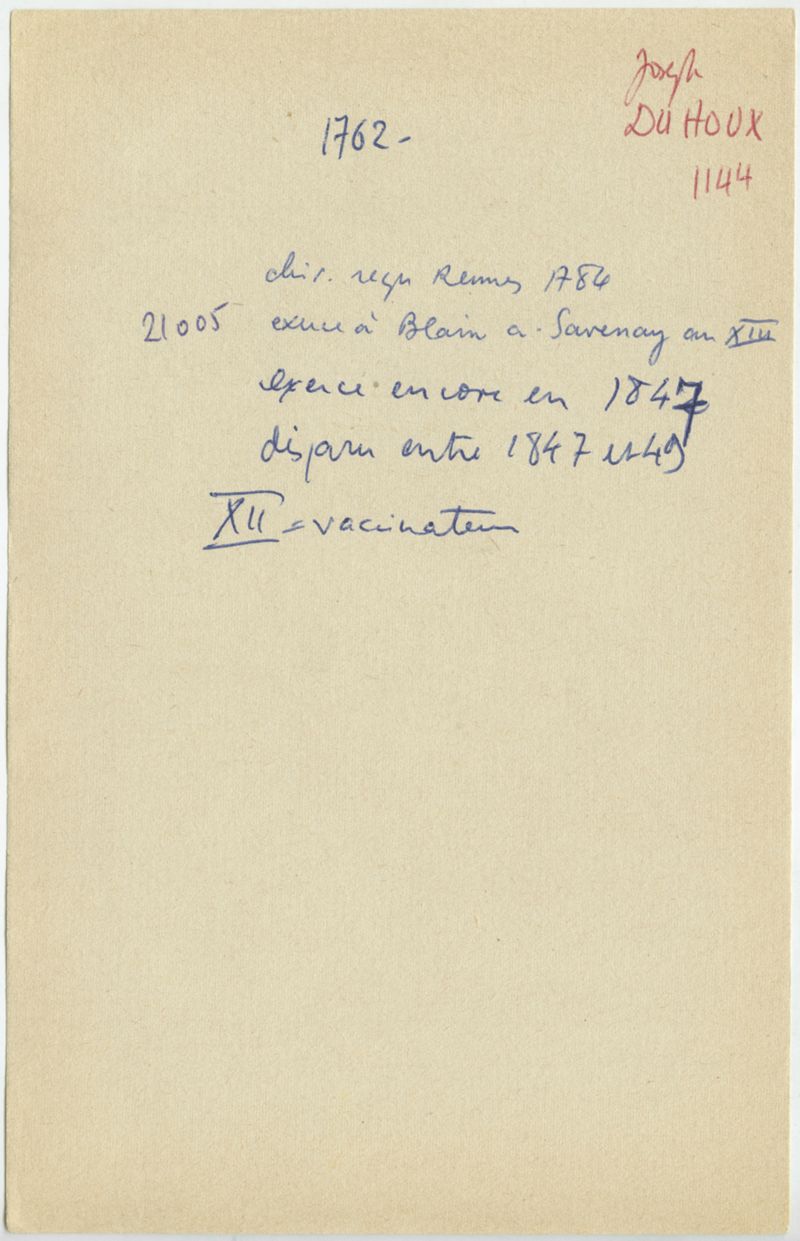 Joseph
DU HOUX
1144
1762 -
chir. reçu Rennes 1784
21005 exerce à Blain a. Savenay an XIII
exerce encore en 1847
disparu entre 1847 et 49
XII = vaccinateur